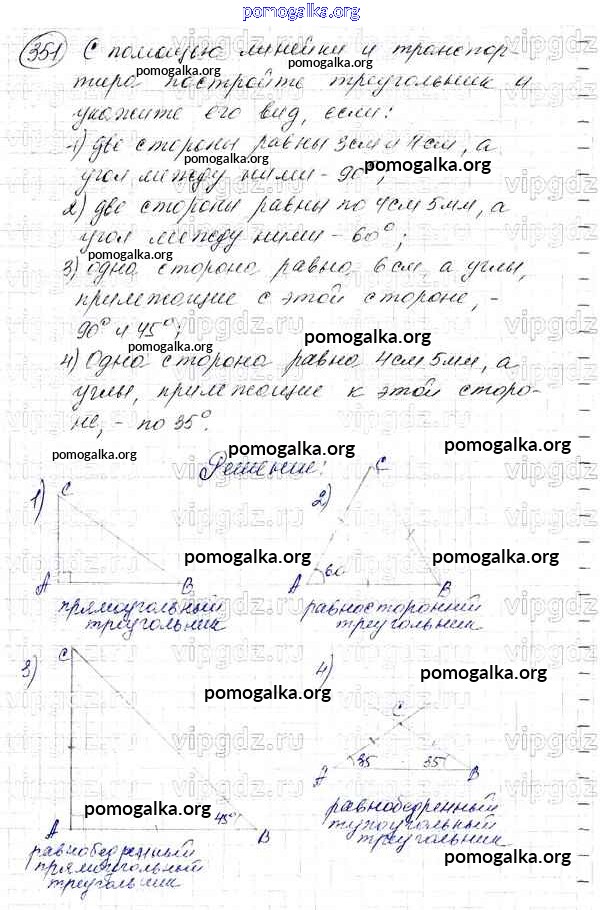 pomogalka.org
351 С помощью линейки и транспор-
тира постройте треугольник и
укажите его вид, если:
1) две стороны равны 3см и 4см, а
угол между ними - 90°;
2) две стороны равны по 4см 5мм, а
угол между ними - 60°;
3) одна сторона равна 6см, а углы,
прилежащие с этой стороне, -
90° и 45°;
4) Одна сторона равна 4см 5мм, а
углы, прилежащие к этой сторо-
не, - по 35°.
Решение:
1) C
A B
прямоугольный
треугольник
2) C
A 60 B
равносторонний
треугольник
3) C
A 45° B
равнобедренный
прямоугольный
треугольник
4) C
A 35 35 B
равнобедренный
тупоугольный
треугольник
pomogalka.org
vipgdz.ru